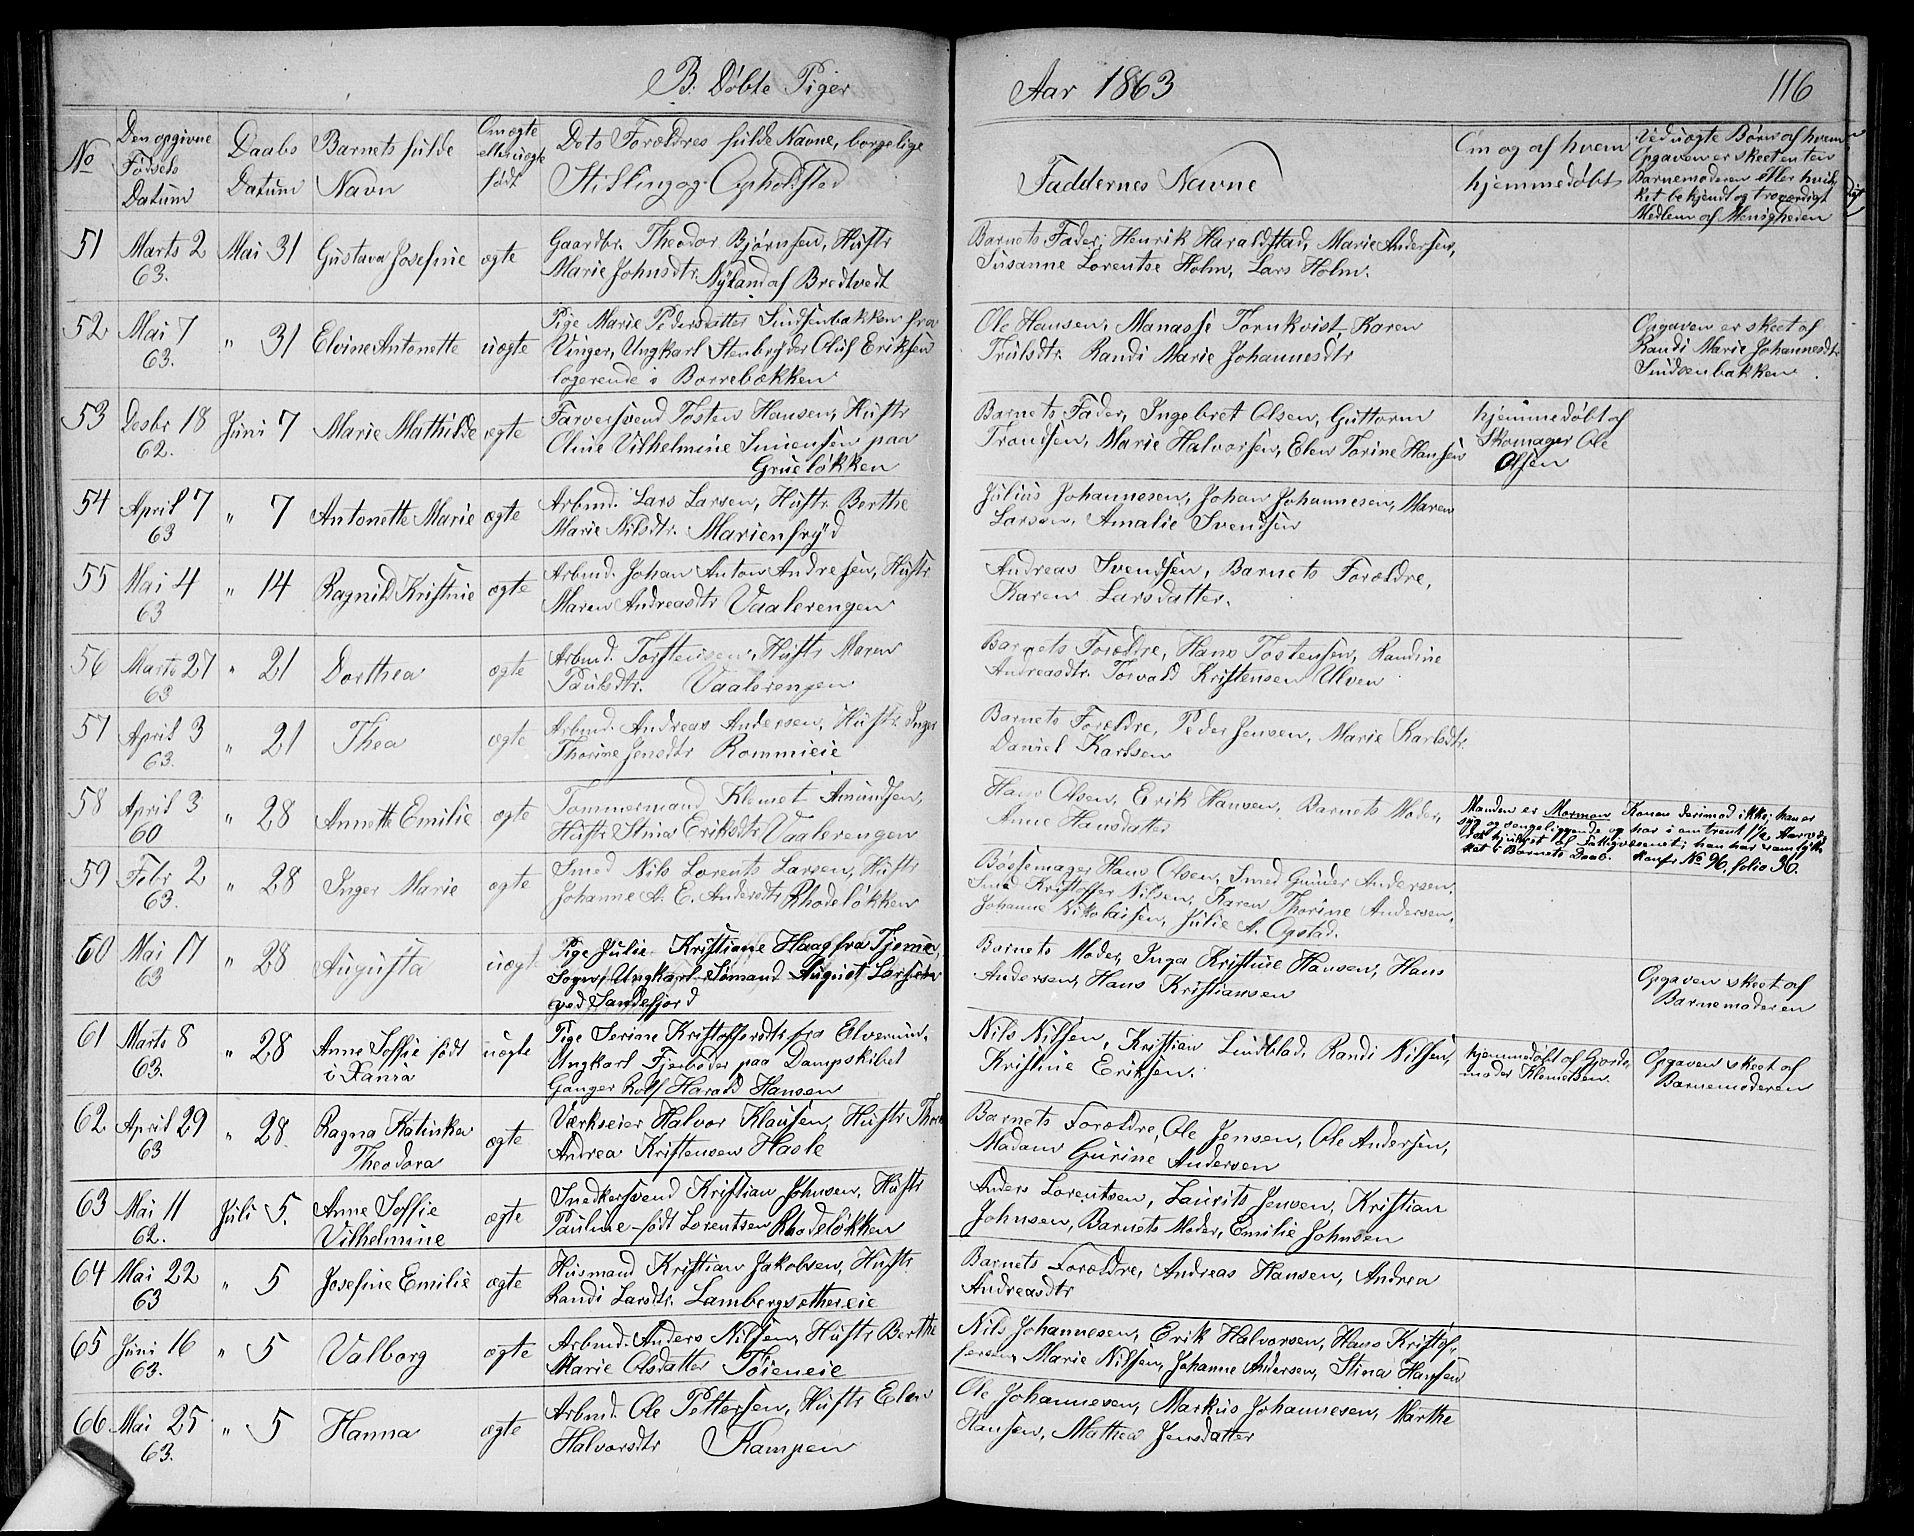 B. Døbte Piger
Aar 1863
116
No
Den opgivne Fødsels Datum
Daabs Datum
Barnets fulde Navn
Om ægte eller uægte født
Dets Forældres fulde Navne, borgelige Stilling og Opholdsted
Faddernes Navne
Om og af hvem hjemmedøbt
Ved uægte Børn af hvem Opgaven er skeet enten Barnemoderen eller hvilket bekjendt og troværdigt Medlem af Menigheden
51 Marts 2 Mai 31 Gustava Josefine ægte Gaardbr. Theodor Bjørnsen, Hustr Barnets Fader, Henrik Haraldstad, Marie Andersen,
63. Marie Johnsdtr. Nyland af Bredtvedt Susanne Lorentse Holm, Lars Holm.
52 Mai 7 " 31 Elvine Antonette uægte Pige Marie Pedersdatter Sindsenbakken fra Ole Hansen, Manasse Tornkvist, Karen Opgaven er skeet af
63. Vinger, Ungkarl Stenbryder Oluf Eriksen Trulsdtr. Randi Marie Johannesdtr Randi Marie Johannesdtr
logerende i Borrebækken Sindsenbakken.
53 Desbr 18 Juni 7 Marie Mathilde ægte Farversvend Tosten Hansen, Hustr Barnets Fader, Ingebret Olsen, Guttorm hjemmedøbt af
62. Oline Vilhelmine Simensen paa Trondsen, Marie Halvorsen, Elen Torine Hansen Skomager Ole
Grueløkken Olsen
54 April 7 " 7 Antonette Marie ægte Arbmd. Lars Larsen, Hustr. Berthe Julius Johannesen, Johan Johannesen, Maren
63 Marie Nilsdtr. Marienfryd Larsen, Amalie Svendsen
55 Mai 4 " 14 Ragnild Kristine ægte Arbmd. Johan Anton Andresen, Hustr Andreas Svendsen, Barnets Forældre,
63 Maren Andreasdtr Vaalerengen Karen Larsdatter.
56 Marts 27 " 21 Dorthea ægte Arbmd. Torstensen, Hustr Maren Barnets Forældre, Hans Tostensen, Randine
63 Paulsdtr. Vaalerengen Andreasdtr. Torvald Kristensen Ulven
57 April 3 " 21 Thea ægte Arbmd. Andreas Andersen, Hustr. Inger Barnets Forældre, Peder Jensen, Marie Karlsdtr.
63. Thorine Jensdtr Rommieie Daniel Karlsen
58 April 3 " 28 Annette Emilie ægte Tømmermand Klemet Amundsen, Hans Olsen, Erik Hansen, Barnets Moder,
60 Hustr Stina Eriksdtr Vaalerengen Anne Hansdatter
Manden er Mormon Konen derimod ikke; han er
syg og sengeliggende og har i omtrent 1 1/2 Aar været
hjulpet af Fattigvæsenet; han har samtykket
i Barnets Daab. konfr. No 96, folio 36.
59 Febr 2 " 28 Inger Marie ægte Smed Nils Lorents Larsen, Hustr Bøssemager Hans Olsen, Smed Gunder Andersen.
63. Johanne A. E. Andersdtr Rhodeløkken Smed Kristoffer Nilsen, Karen Thorine Andersen,
Johanne Nikolaisen, Julie A. Opstad.
60 Mai 17 " 28 Augusta uægte Pige Julie Kristiane Haag fra Tjømø Barnets Moder, Inga Kristine Hansen, Hans Opgaven skeet af
63 Sogn, Ungkarl Sømand August Larsen Andersen, Hans Kristiansen Barnemoderen
ved Sandefjord
61 Marts 8 " 28 Anne Soffie født uægte Pige Serine Kristoffersdtr fra Elverum, Nils Nilsen, Kristian Lindblad, Randi Nilsen, hjemmedøbt af Gjorde- Opgaven skeet af
63. i Xania Ungkarl Fyrbøder paa Dampskibet Kristine Eriksen. moder Klemetsen. Barnemoderen
Ganger Rolf Harald Hansen
62. April 29 " 28 Ragna Katinka ægte Værkseier Halvor Klausen, Hustr Thora Barnets Forældre, Ole Jensen, Ole Andersen,
63 Theodora Andrea Kristensen Hasle Madam Gurine Andersen
63 Mai 11 Juli 5. Anne Soffie ægte Snedkersvend Kristian Johnsen, Hustr Anders Lorentsen, Laurits Jensen, Kristian
62. Vilhelmine Pauline født Lorentsen Rhodeløkken Johnsen, Barnets Moder, Emilie Johnsen
64 Mai 22 " 5 Josefine Emilie ægte Husmand Kristian Jakobsen, Hustr Barnets Forældre, Andreas Hansen, Andrea
63 Randi Larsdtr. Lambergsæthereie Andreasdtr
65 Juni 16 " 5 Valborg ægte Arbmd. Anders Nilsen, Hustr Berthe Nils Johannesen, Erik Halvorsen, Hans Kristof-
63. Marie Olsdatter Tøieneie fersen, Marie Nilsen, Johanne Andersen, Stina Hansen
66 Mai 25 " 5 Hanna ægte Arbmd. Ole Pettersen, Hustr Elen Ole Johannesen, Markus Johannesen, Marthe
63. Halvorsdtr Kampen Hansen, Mathea Jensdatter